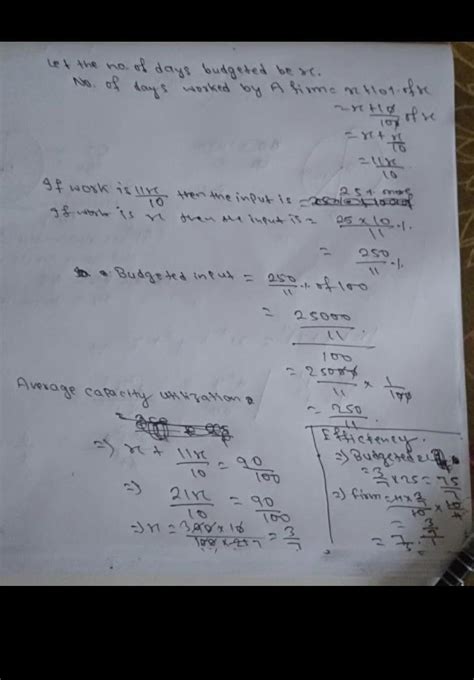 Let the no. of days budgeted be x.
No. of days worked by A firm = x + 10% of x
= x + 10/100 of x
= x + x/10
= 11x/10
If work is 11x/10 then the input is = 25%
If work is x then the input is = 25 × 10/11 %.
= 250/11 %
Budgeted input = 250/11 % of 100
= 25000/11 / 100
= 25000/11 × 1/100
= 250/11
Average capacity utilization
=> x + 11x/10 = 90/100
=> 21x/10 = 90/100
=> x = 10/100 = 3/7
Efficiency.
=> Budgeted
= 3/7 × 75 = 75/7
=> firm =
= 7/3